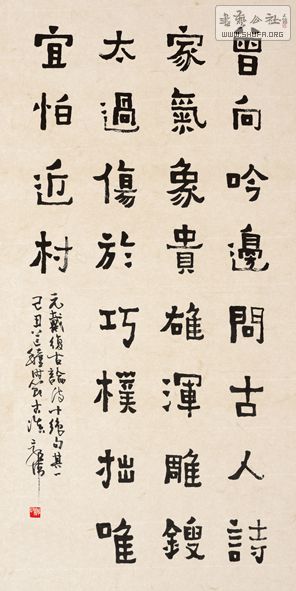 曾向吟邊問古人詩
家氣象貴雄渾雕鎪
太過傷於巧樸拙唯
宜怕近村
元戴復古論詩十絕句其一
己丑
WWW.SHUFA.ORG